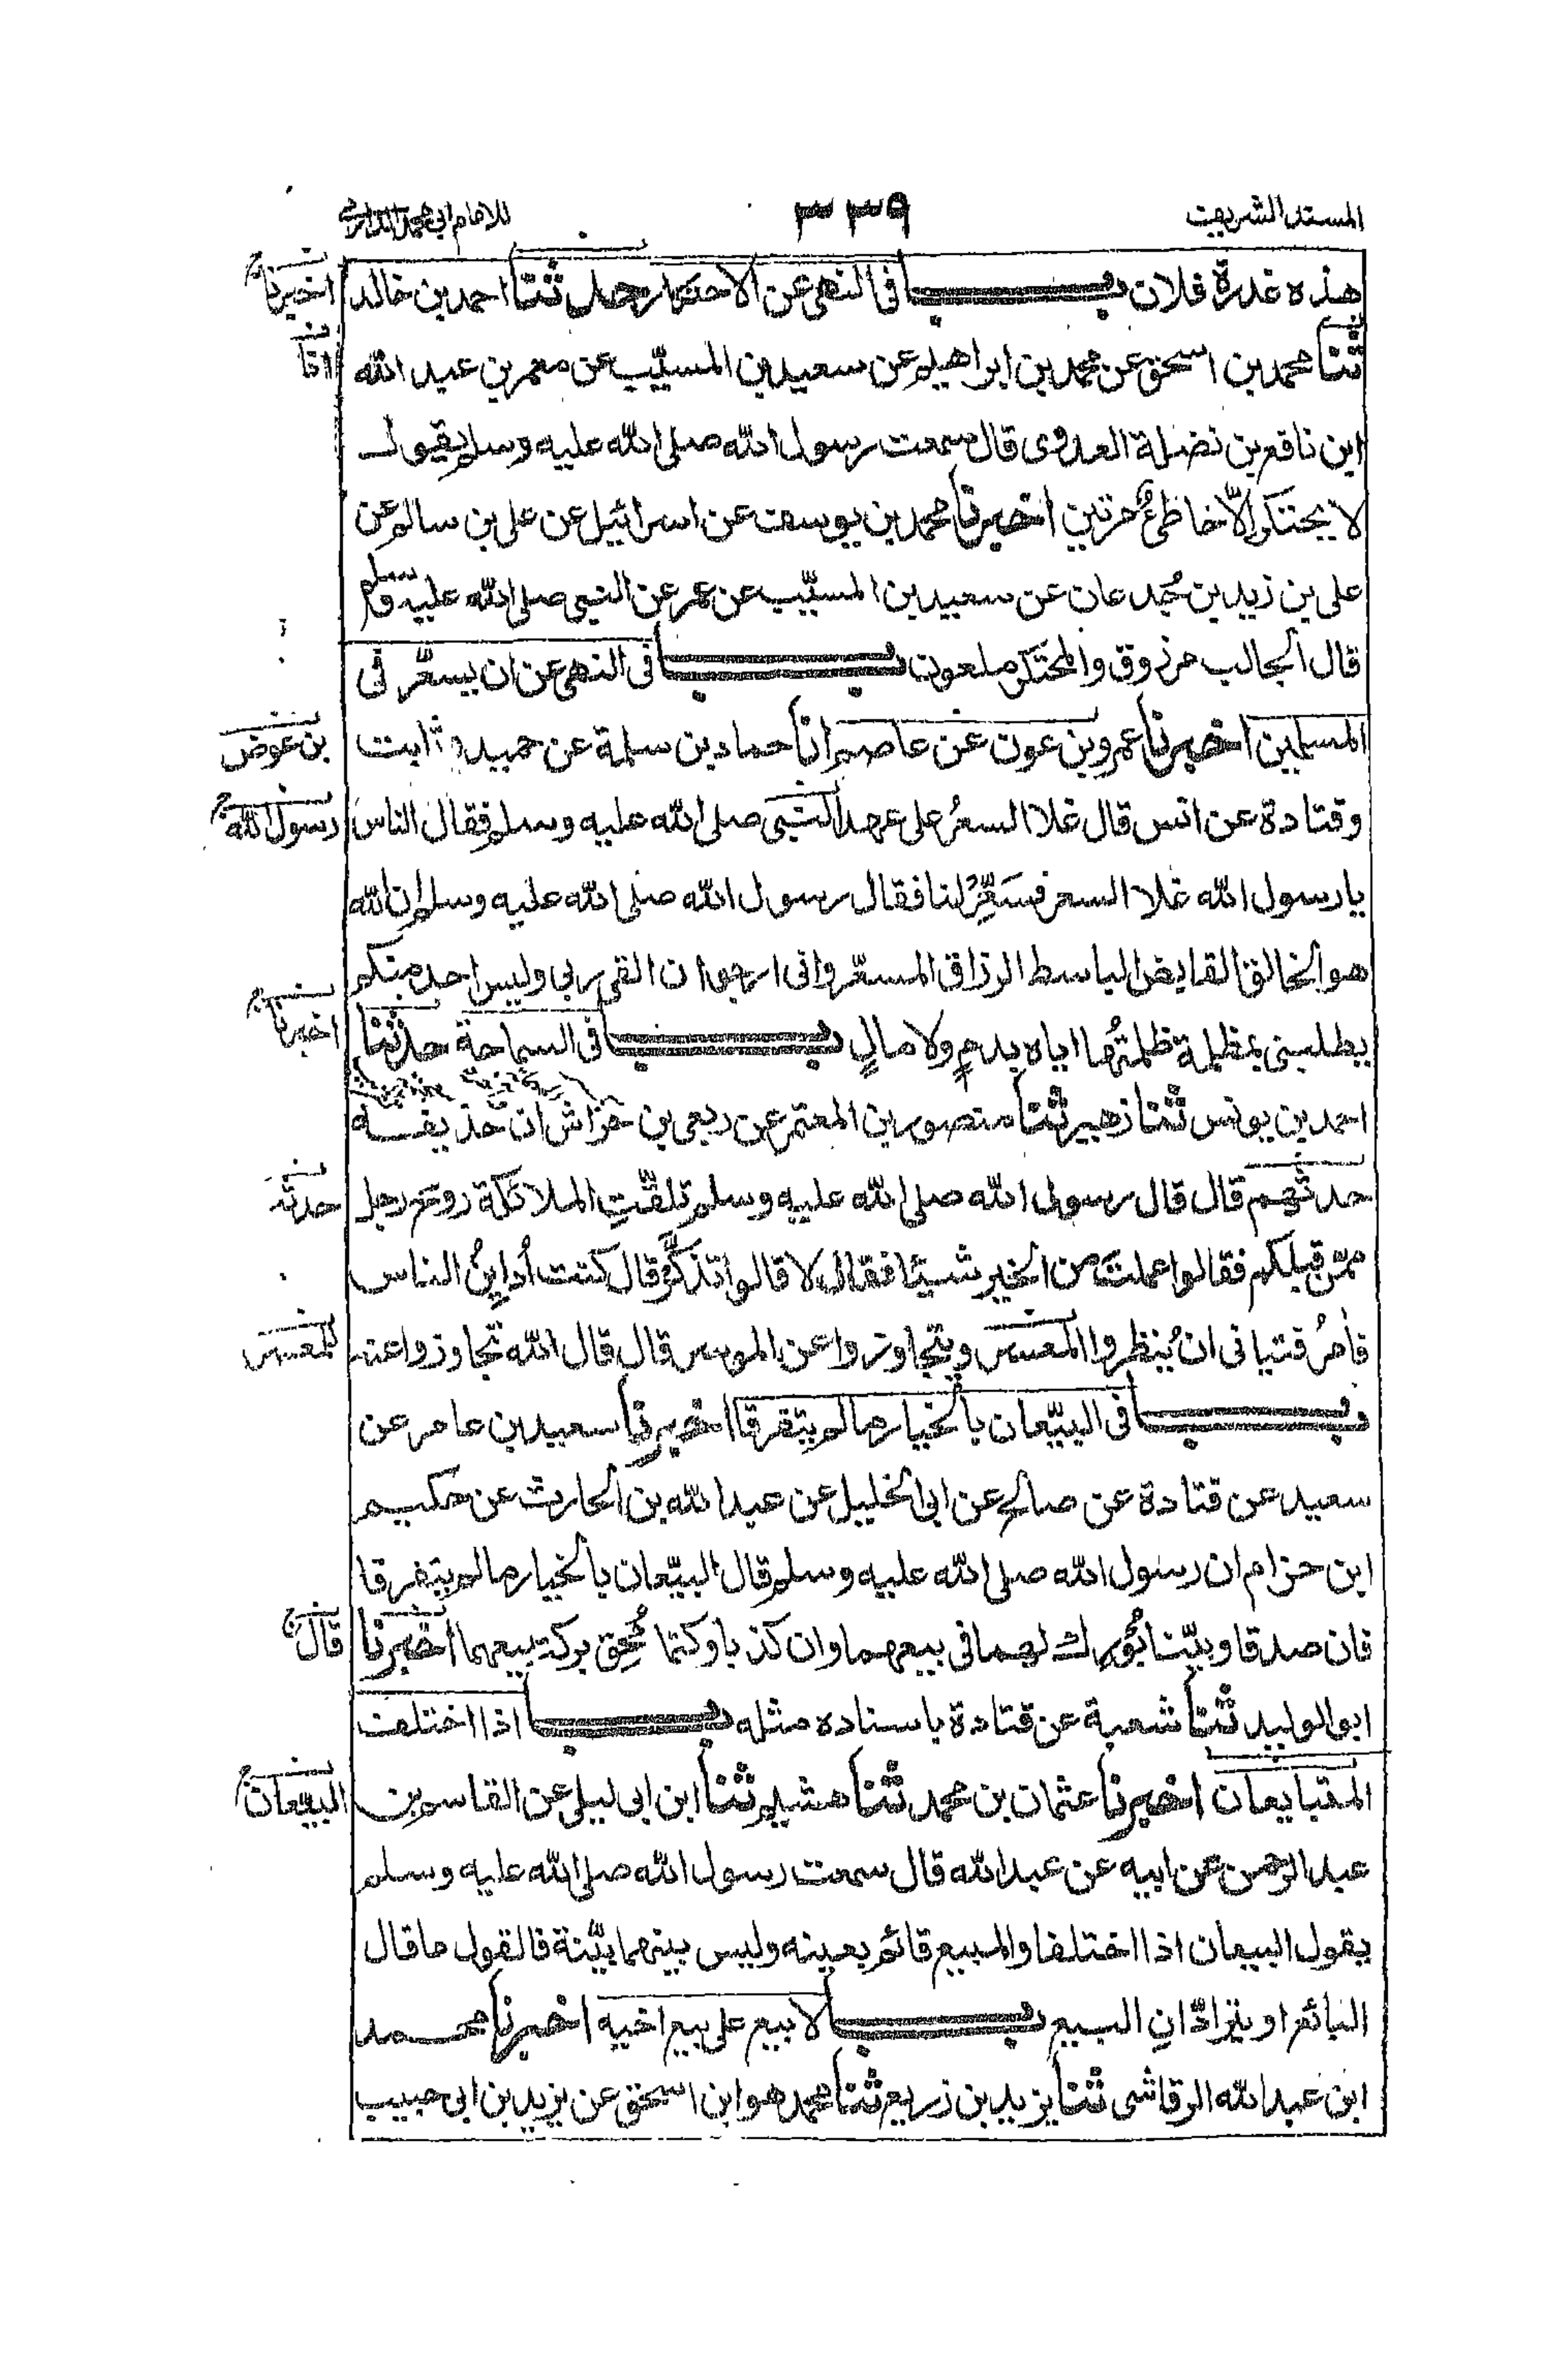 المسند الشريف ٣٣٩ للامام ابي محمد الدارمي
هذه غدرة فلان باب في النهى عن الاحتكار حدثنا احمد بن خالد
اخبرنا
ثنا محمد بن اسحق عن محمد بن ابراهيم عن سعيد بن المسيّب عن معمر بن عبد الله
انا
ابن نافع بن نضلة العدوى قال سمعت رسول الله صلى الله عليه وسلم يقول
لا يحتكر الّا خاطئٌ مرتين اخبرنا محمد بن يوسف عن اسرائيل عن على بن سالم عن
على بن زيد بن جُدعان عن سعيد بن المسيّب عن عمر عن النبي صلى الله عليه وسلم
قال الجالب مرزوق والمحتكر ملعون باب في النهى عن ان يسعّر فى
المسلمين اخبرنا عمرو بن عون عن عاصم انا حماد بن سلمة عن حميد و ثابت
بن عوض
وقتادة عن انس قال غلا السعرُ على عهد النبى صلى الله عليه وسلم فقال الناس
رسول الله
يا رسول الله غلا السعر فسَعِّرْ لنا فقال رسول الله صلى الله عليه وسلم ان الله
هو الخالق القابض الباسط الرزاق المسعّر وانى ارجو ان القى ربى وليس احد منكم
يطلبنى بمظلمة ظلمتُها اياه بدمٍ ولا مالٍ باب فى السماحة حدثنا
اخبرنا
احمد بن يونس ثنا زهير ثنا منصور بن المعتمر عن ربعى بن خراش ان حذيفة
حدثهم قال قال رسول الله صلى الله عليه وسلم تلقّتِ الملائكة روح رجل
حدثه
ممن قبلكم فقالوا عملتَ من الخير شيئا فقال لا قالوا تذكّر قال كنت أُداينُ الناس
فآمرُ فتيانى ان يُنظروا المعسر ويتجاوزوا عن الموسر قال قال الله تجاوزوا عنه
للمعسر
باب فى البيّعان بالخيار ما لم يتفرقا اخبرنا سعيد بن عامر عن
سعيد عن قتادة عن صالح عن ابى الخليل عن عبد الله بن الحارث عن حكيم
ابن حزام ان رسول الله صلى الله عليه وسلم قال البيّعان بالخيار ما لم يتفرقا
فان صدقا وبيّنا بُورِك لهما فى بيعهما وان كذبا وكتما مُحِق بركة بيعهما اخبرنا
قال
ابو الوليد ثنا شعبة عن قتادة باسناده مثله باب اذا اختلف
المتبايعان اخبرنا عثمان بن محمد ثنا هشيم ثنا ابن ابى ليلى عن القاسم بن
البيّعان
عبد الرحمن عن ابيه عن عبد الله قال سمعت رسول الله صلى الله عليه وسلم
يقول البيعان اذا اختلفا والمبيع قائم بعينه وليس بينهما بيّنة فالقول ما قال
البائع او يترادّانِ البيع باب لا يبيع على بيع اخيه اخبرنا محمد
ابن عبد الله الرقاشى ثنا يزيد بن زريع ثنا محمد هو ابن اسحق عن يزيد بن ابى حبيب